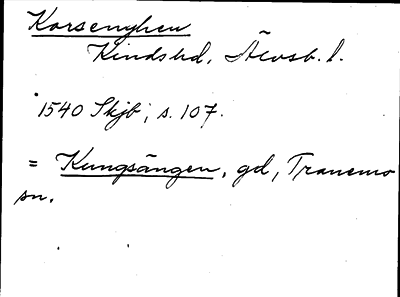 Korsenghen
Kindshd, Älvsb. l.
1540 Skjb; s. 107.
= Kungsängen, gd, Tranemo
sn.